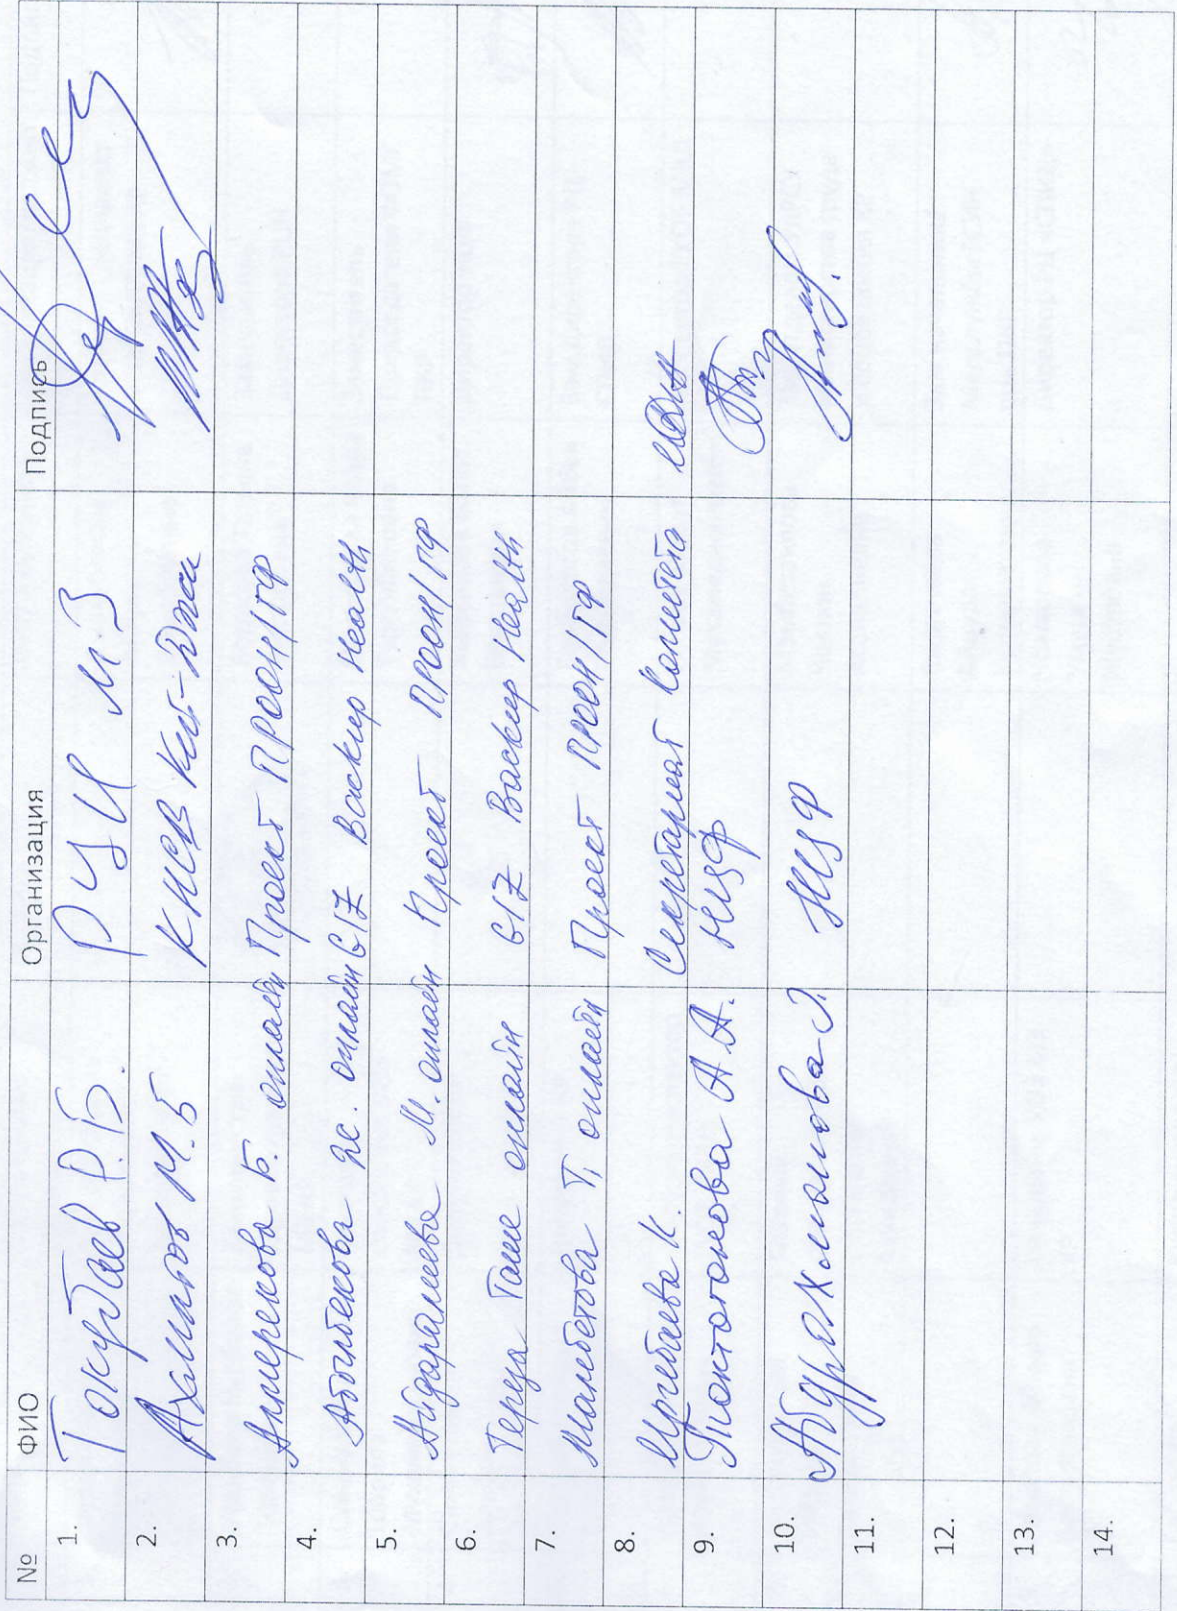 № ФИО Организация Подпись
1. Токубаев Р.Б. РЦИ МЗ
2. М.Б КНСВ
3. Б. онлайн Проект ПРООН/ГФ
4. Абылбекова Ж. онлайн GIZ Backup Health
5. Айдаралиева М. онлайн Проект ПРООН/ГФ
6. онлайн GIZ Backup Health
7. Мамбетова Т. онлайн Проект ПРООН/ГФ
8. К. Секретариат Комитета
9. Токтогонова А.А. НЦФ
10. Абдрахманова Э. НЦФ
11.
12.
13.
14.